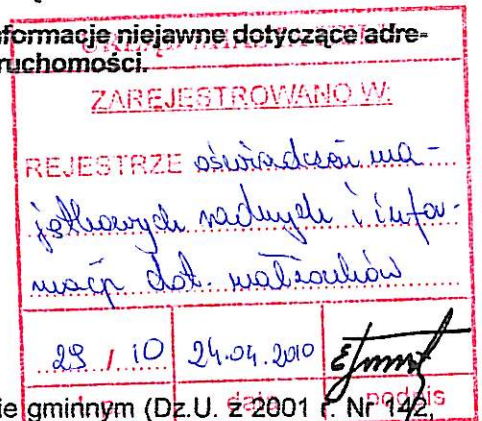 nformacje niejawne dotyczące adre-
ruchomości.
ZAREJESTROWANO W:
REJESTRZE oświadczeń ma-
jątkowych radnych i infor-
macji dot. małżonków
29 / 10 24.04.2010
data podpis
ie gminnym (Dz.U. z 2001 r. Nr 142,